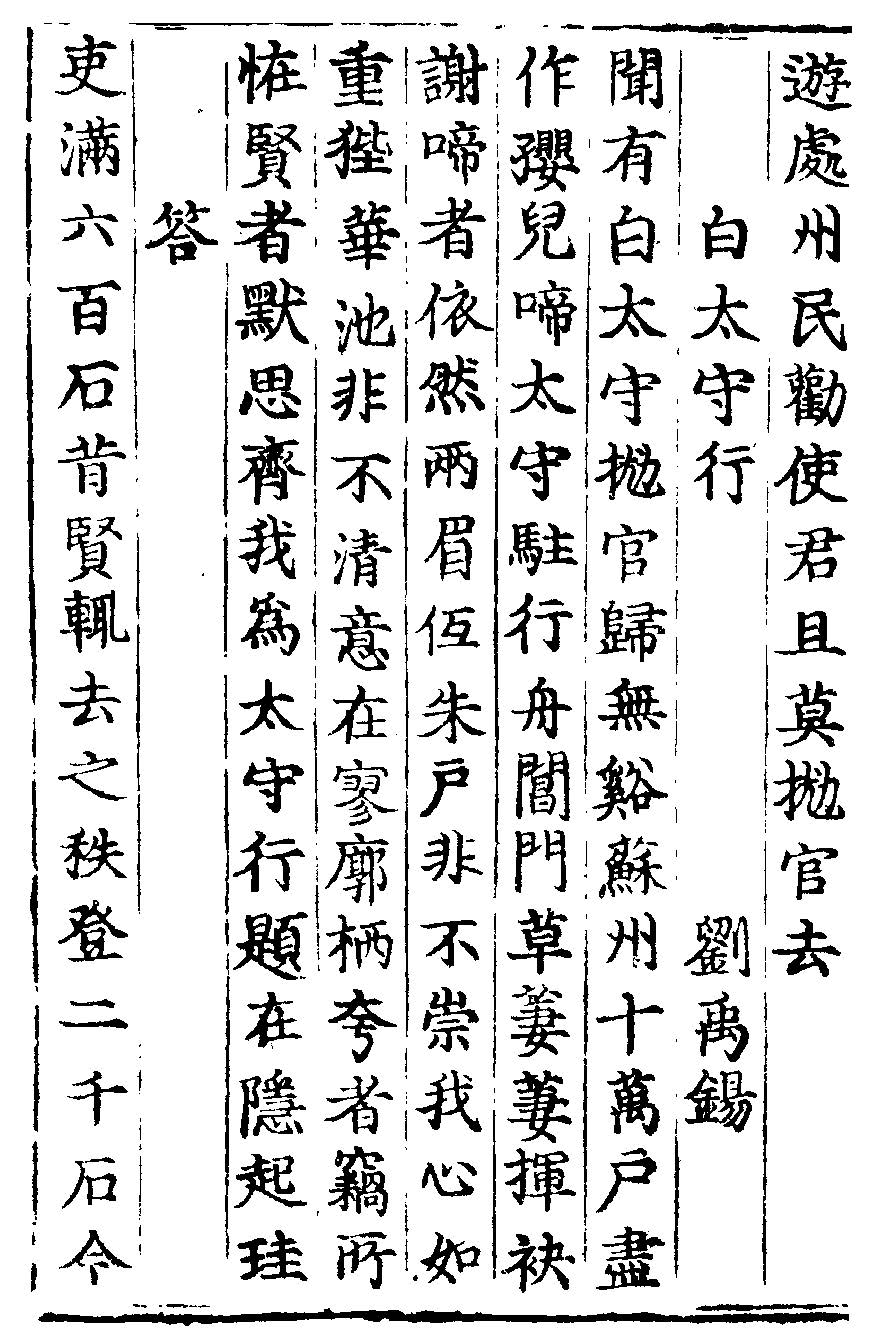 遊處州民勸使君且莫抛官去
白太守行 劉禹錫
聞有白太守抛官歸無谿蘇州十萬戶盡
作孾兒啼太守駐行舟閶門草萋萋揮袂
謝啼者依然兩眉伍朱戶非不崇我心如
重狴華池非不清意在寥廓栖夸者竊所
恠賢者默思齊我為太守行題在隱起珪
答
吏滿六百石昔賢輒去之秩登二千石今